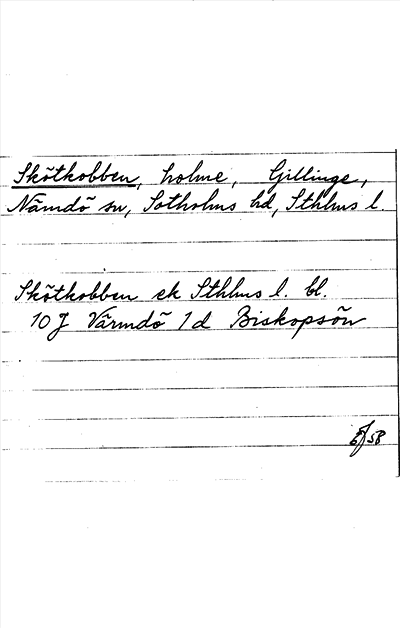 Skötkobben, holme, Gillinge,
Nämdö sn, Sotholms hd, Sthlms l.
Skötkobben ek Sthlms l. bl.
10 J Värmdö 1 d Biskopsön
58